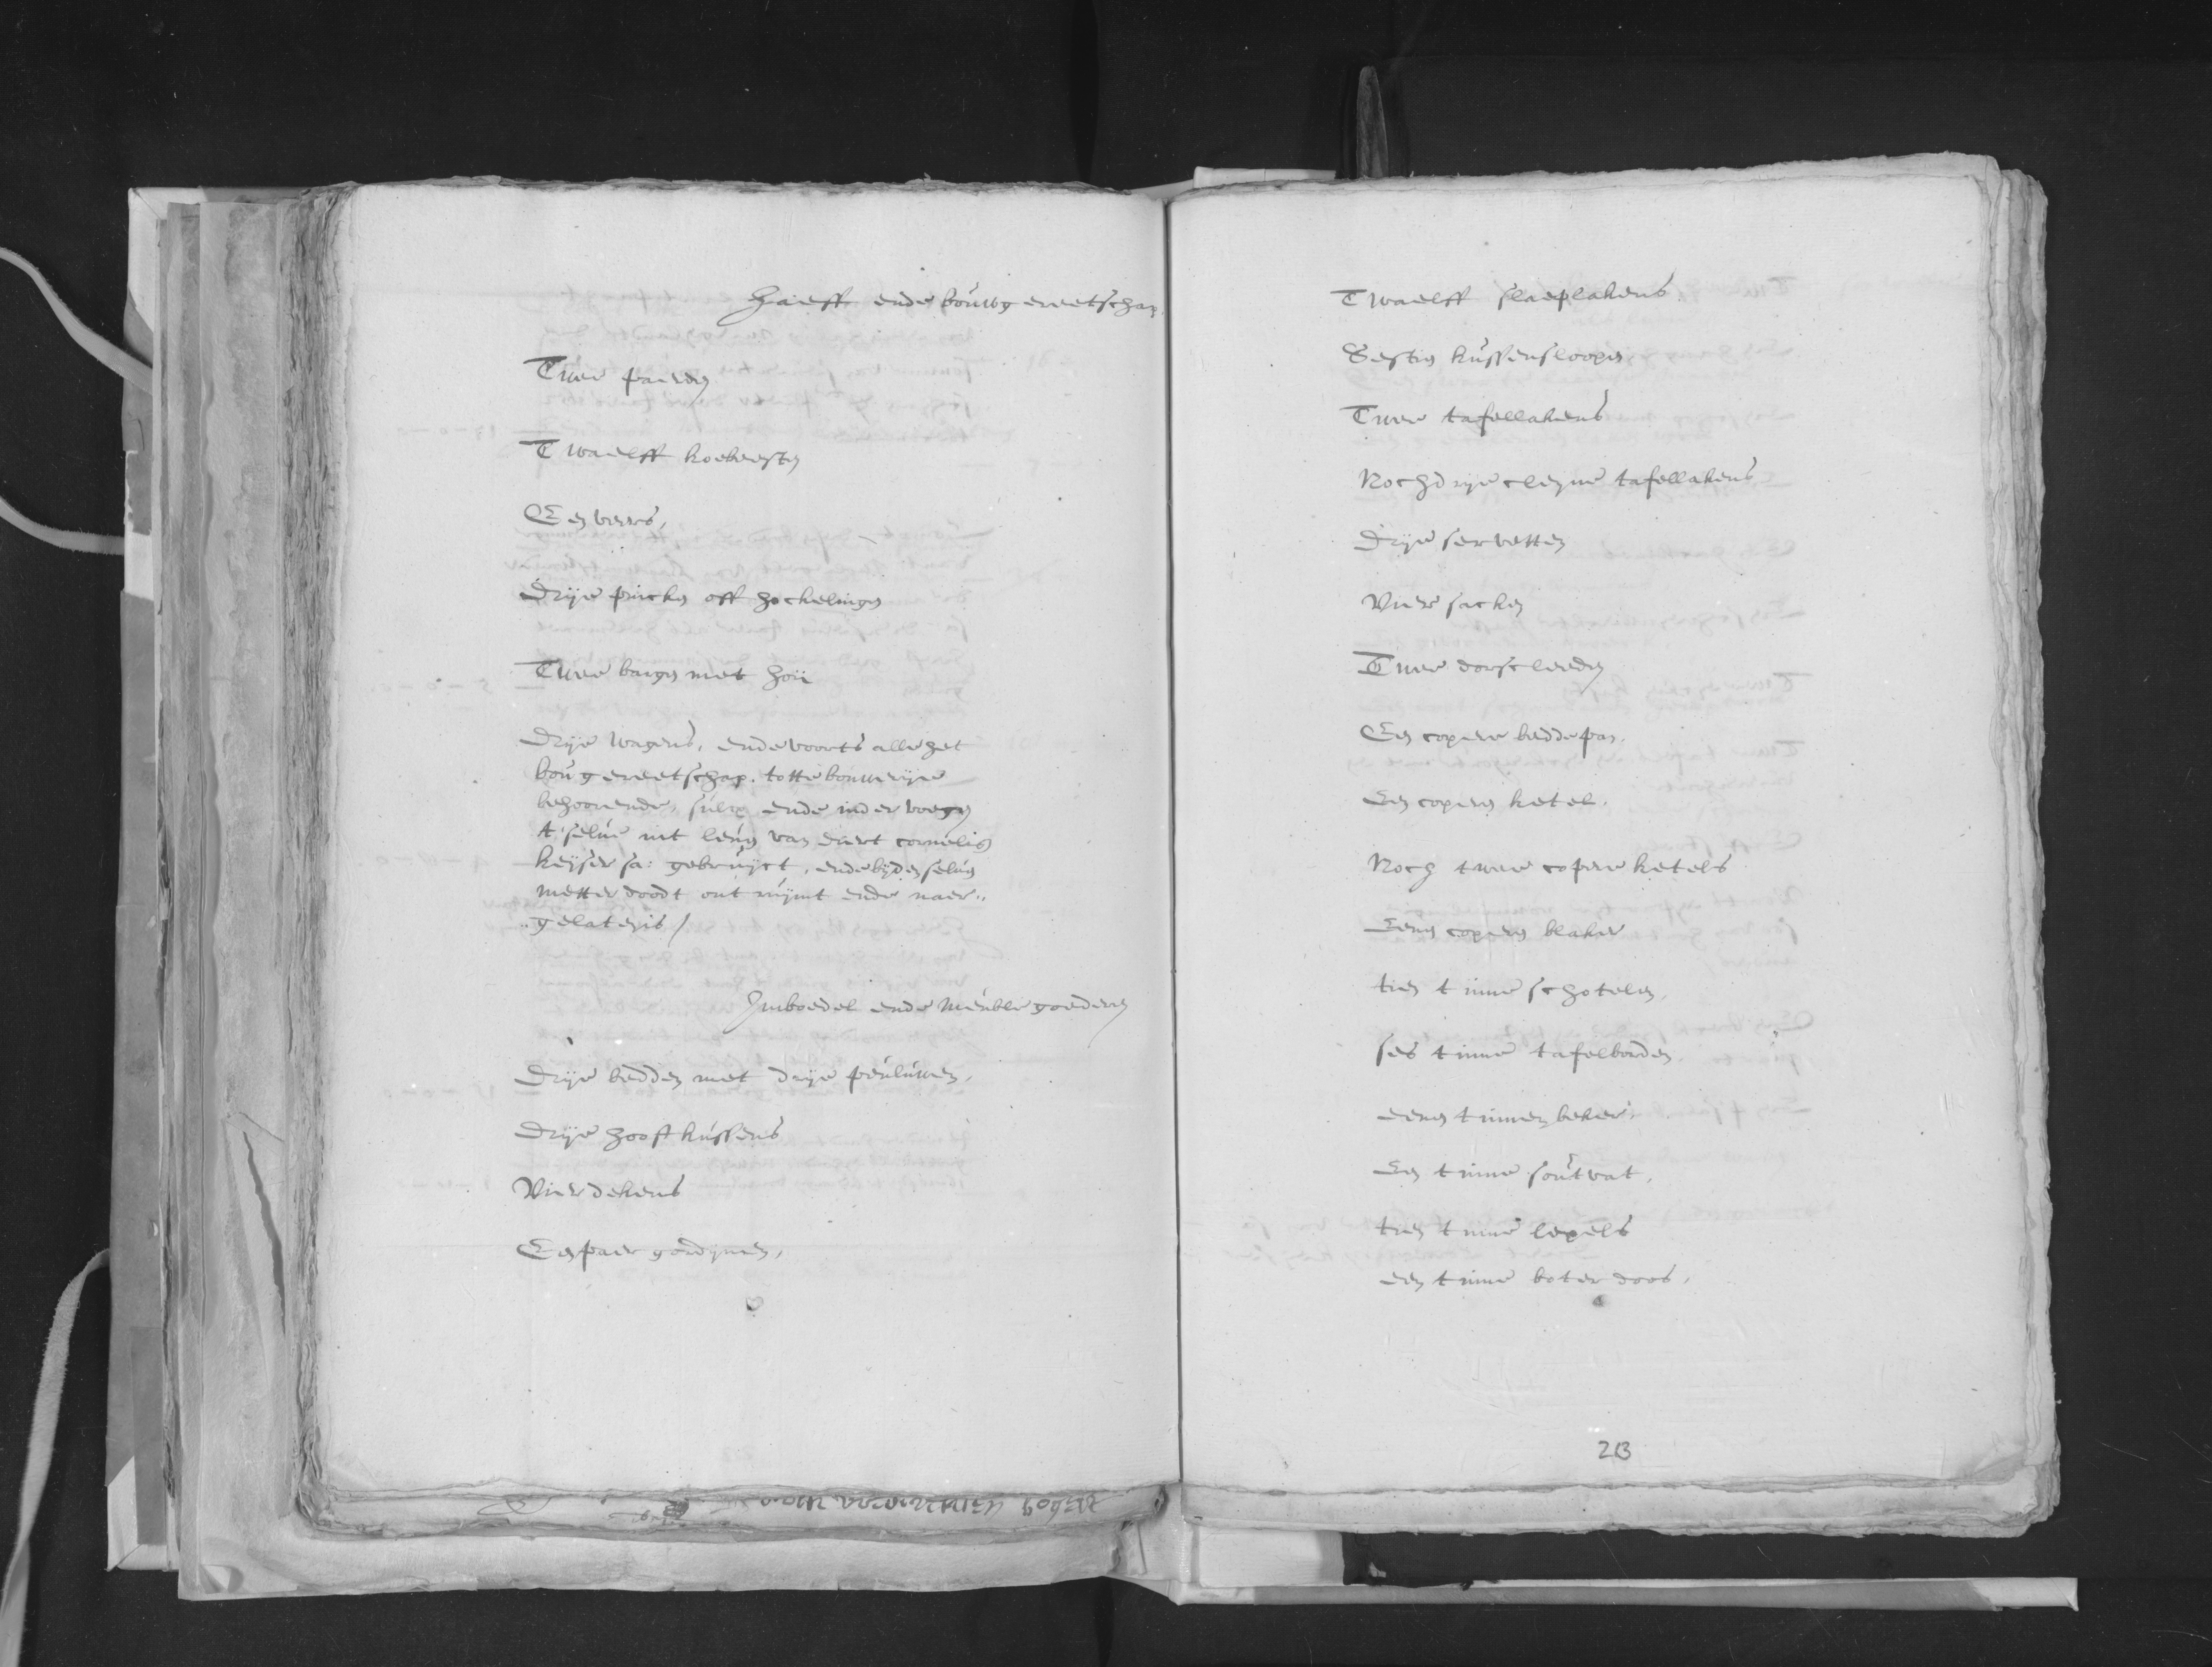 Haeff ende bouwgereetschap.
Twee paerden
Twaelff koebeesten
Een veers,
Drije pincken off hockelingen
Twee bargen met hoij
Drije wagens, ende voorts alle het
bougereetschap. totte bouwerije
behoorende, sulcx ende inder voegen
t'selve int leven van Evert Cornelisz
Keyser sa: gebruijct, ende bijden selven
metter doodt ontruijmt ende naer„
„gelaten is /
Imboedel ende meuble goederen
Drije bedden met drije peuluwen,
Drije hooftkussens
Vier dekens
Een paer gordijnen,
Twaelff slaeplakens.
Sestien kussensloopen
Twee tafellakens
Noch drije cleyne tafellakens
Drije servetten
Vier sacken
Twee dorscleeden
Een copere beddepan.
Een coperen ketel.
Noch twee copere ketels
Eenen coperen blaker
tien tinne schotelen,
ses tinne tafelborden,
eenen tinnen beker,
Een tinne soutvat,
tien tinne lepels
een tinne boter doos,
213